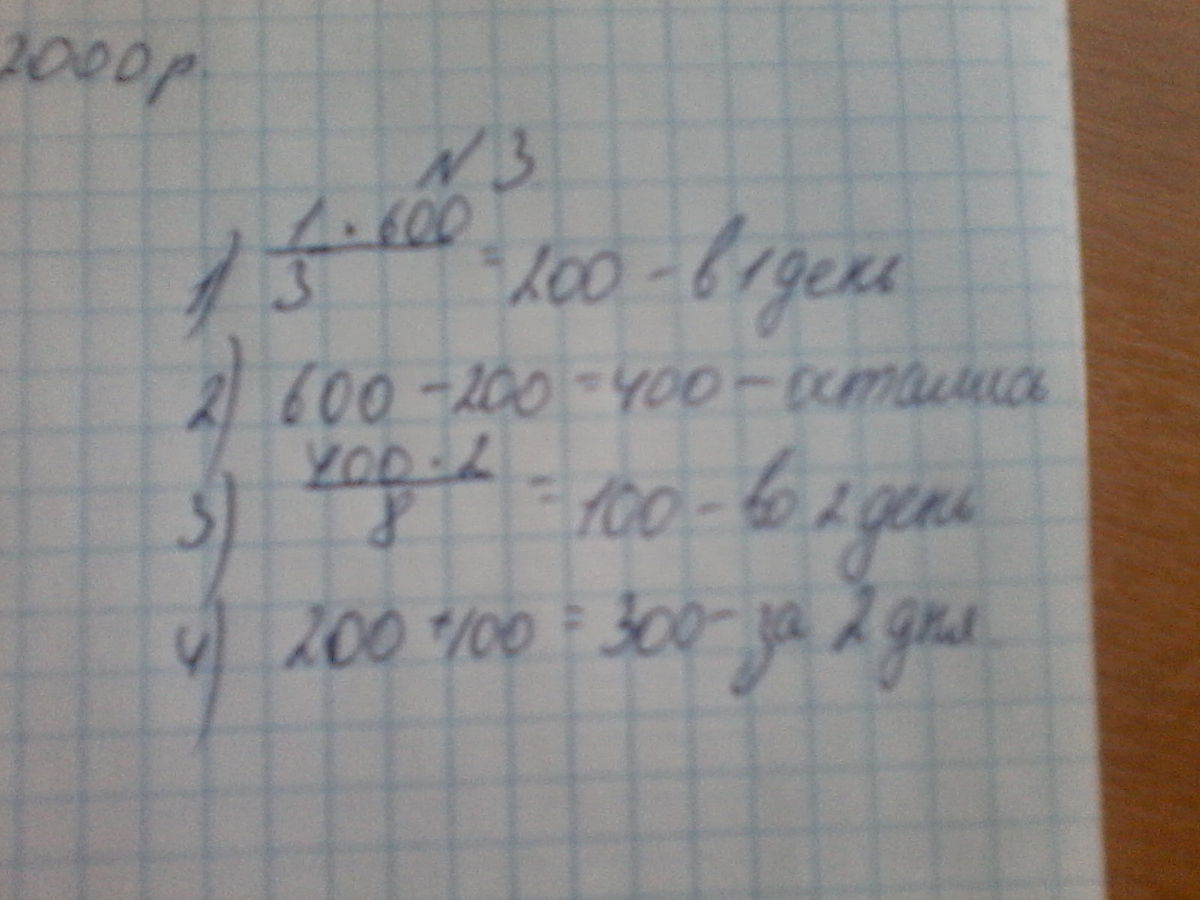 2000р.
№ 3
1) 1 · 600 / 3 = 200 - в 1 день
2) 600 - 200 = 400 - остались
3) 400 · 2 / 8 = 100 - во 2 день
4) 200 + 100 = 300 - за 2 дня